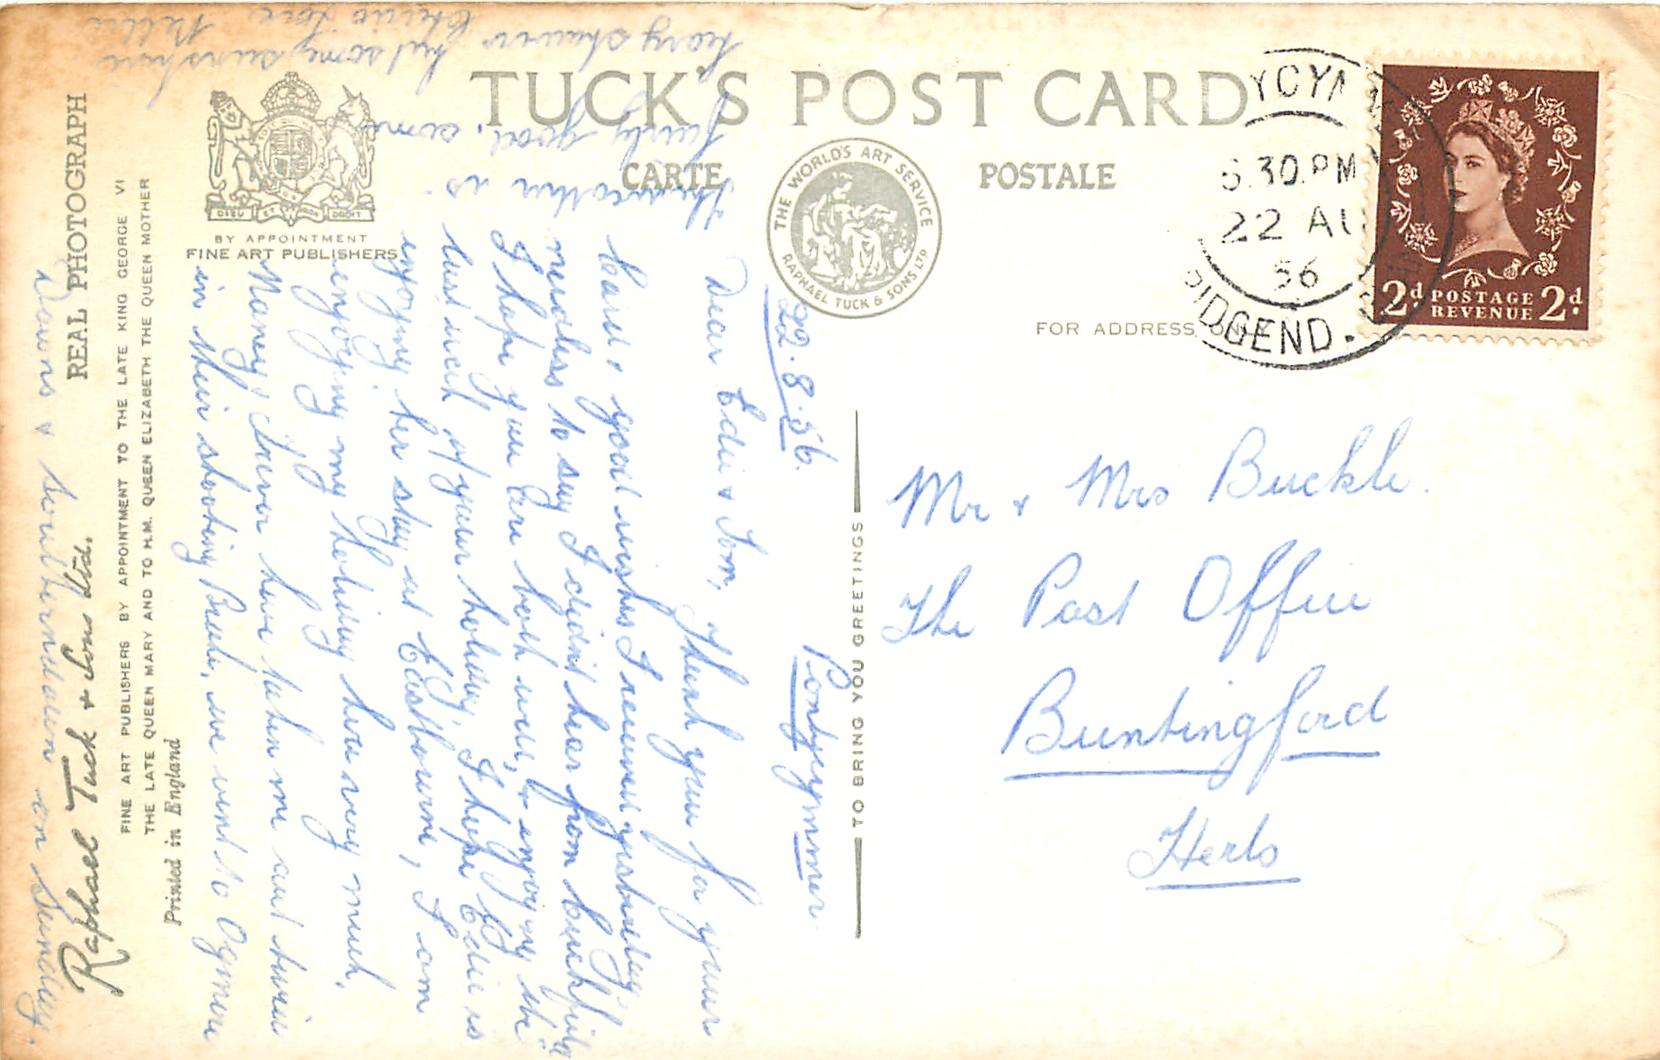 TUCK'S POST CARD
CARTE POSTALE
THE WORLD'S ART SERVICE
RAPHAEL TUCK & SONS LTD
DIEU ET MON DROIT
BY APPOINTMENT
FINE ART PUBLISHERS
FOR ADDRESS ONLY
5.30 PM
22 AU
56
BRIDGEND.
2d POSTAGE 2d
REVENUE
REAL PHOTOGRAPH
Raphael Tuck & Sons Ltd.
FINE ART PUBLISHERS BY APPOINTMENT TO THE LATE KING GEORGE VI
THE LATE QUEEN MARY AND TO H.M. QUEEN ELIZABETH THE QUEEN MOTHER
Printed in England
TO BRING YOU GREETINGS
22.8.56.
Pontycymmer
Dear Edie & Tom, Thank you for your
card & good wishes I received yesterday,
needless to say I didn't hear from
I hope you are both well, & enjoying the
last week of your holiday, I hope Edie is
enjoying her stay at Eastbourne, I am
enjoying my holiday here very much,
Nancy & Trevor have taken me out twice
in their shooting Brake, we went to Ogmore
Downs & Southerndown on Sunday.
The weather is
fairly good, some
heavy showers but some sunshine
Cheerio Love Nellie
Mr & Mrs Buckle.
The Post Office
Buntingford
Herts